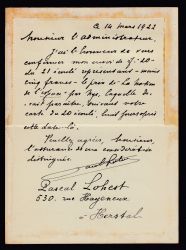 Le 14 mars 1922
Monsieur l'administrateur
J'ai l'honneur de vous
confirmer mon envoi de f. 20-
du 21 écoulé représentant - moins
cinq francs - le prix de la
de l' par laquelle de-
vait paraître, suivant votre
carte du 20 écoulé,
cette date-là.
Veuillez agréer, Monsieur,
l'assurance de ma considération
distinguée.
Pascal Lohest
530. rue Hayeneux
à Herstal